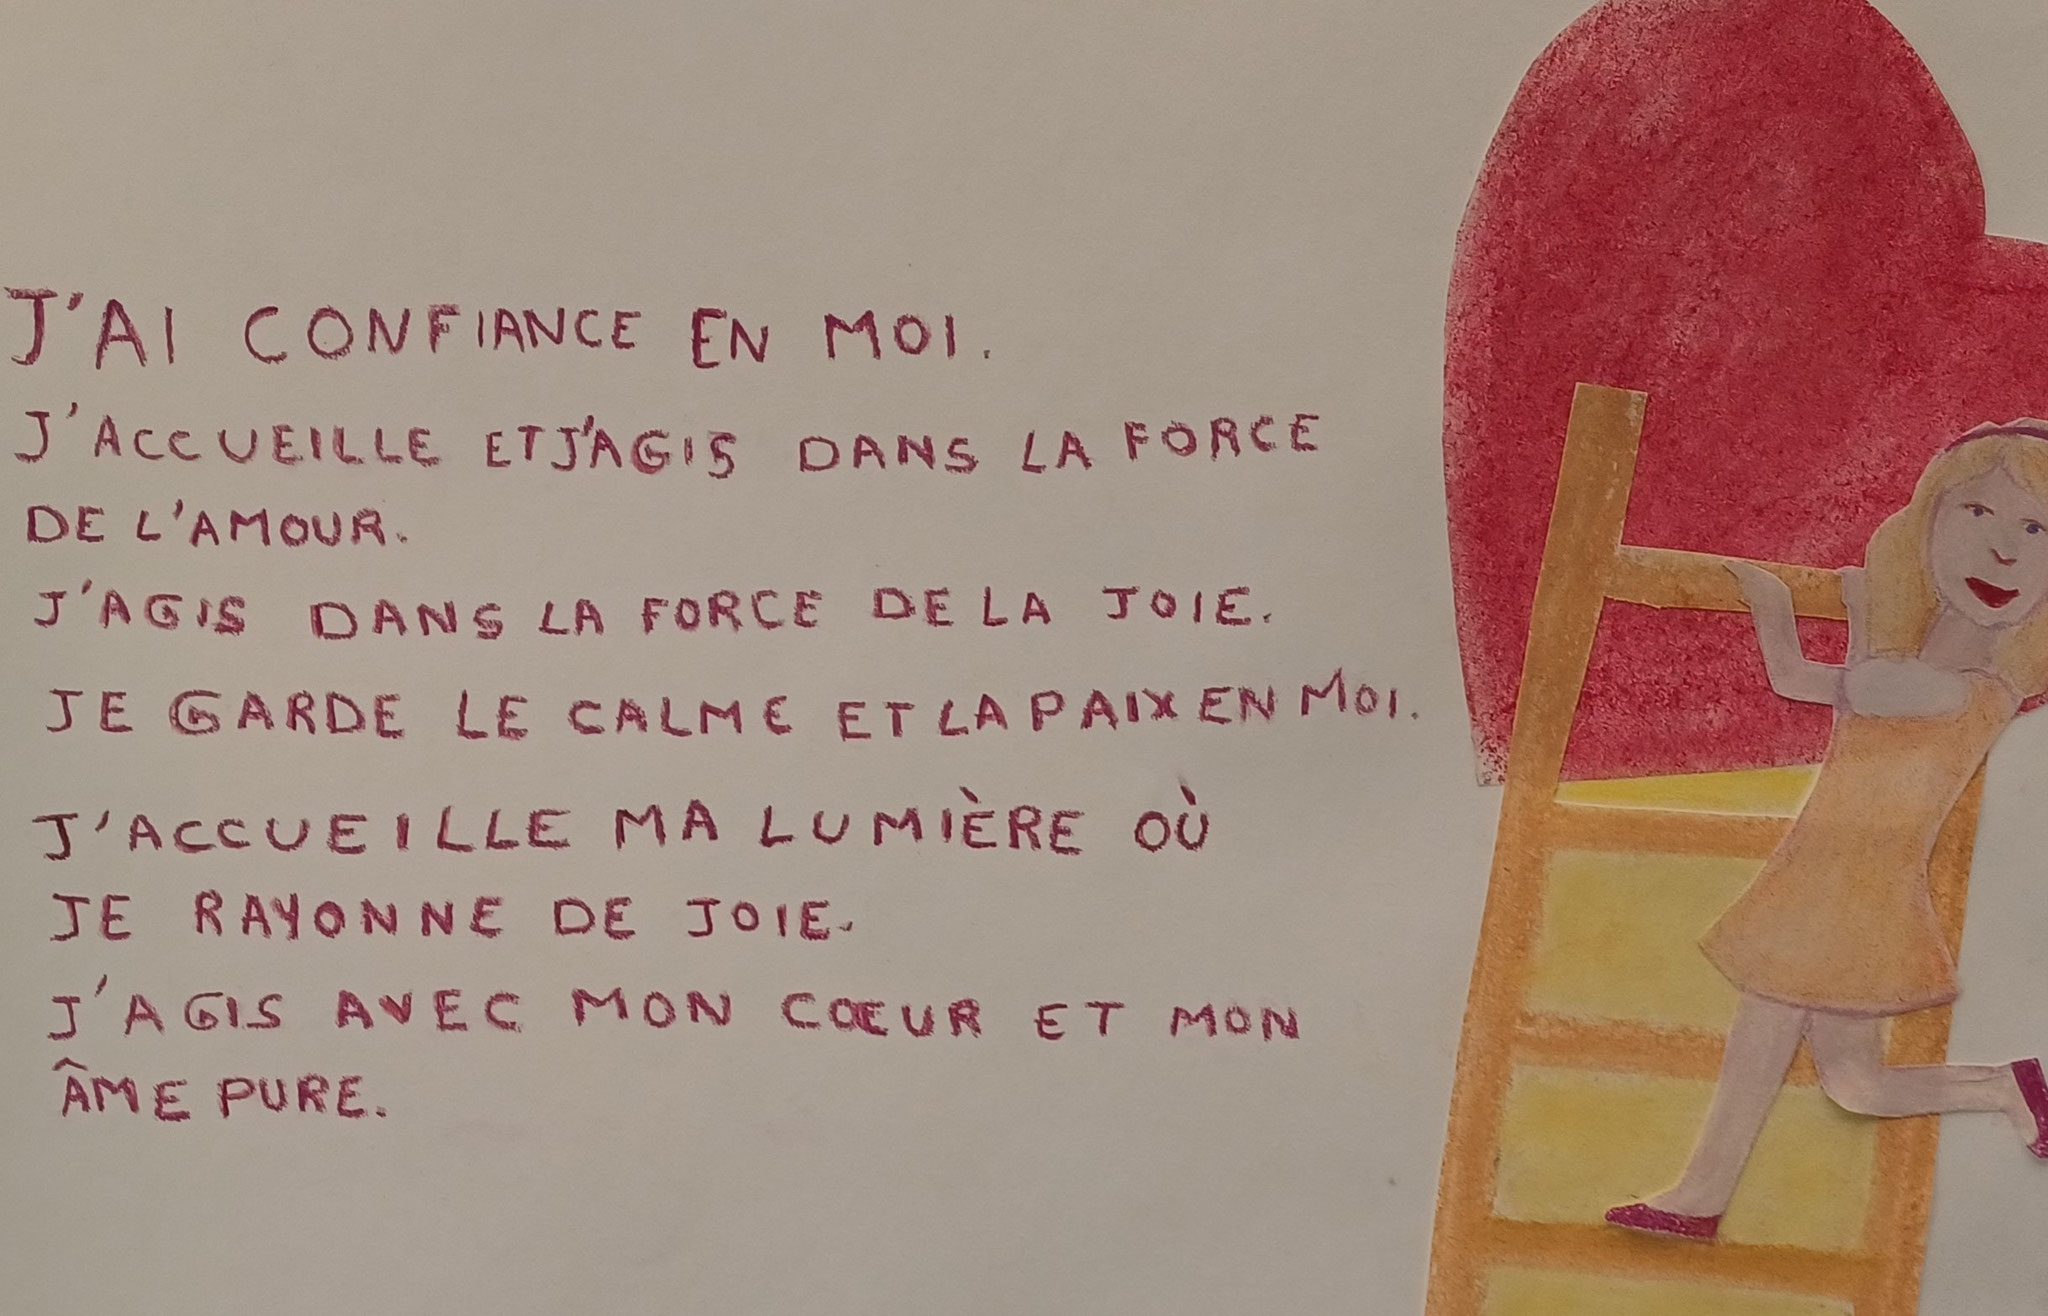 J'AI CONFIANCE EN MOI.
J'ACCUEILLE ET J'AGIS DANS LA FORCE
DE L'AMOUR.
J'AGIS DANS LA FORCE DE LA JOIE.
JE GARDE LE CALME ET LA PAIX EN MOI.
J'ACCUEILLE MA LUMIÈRE OÙ
JE RAYONNE DE JOIE.
J'AGIS AVEC MON CŒUR ET MON
ÂME PURE.